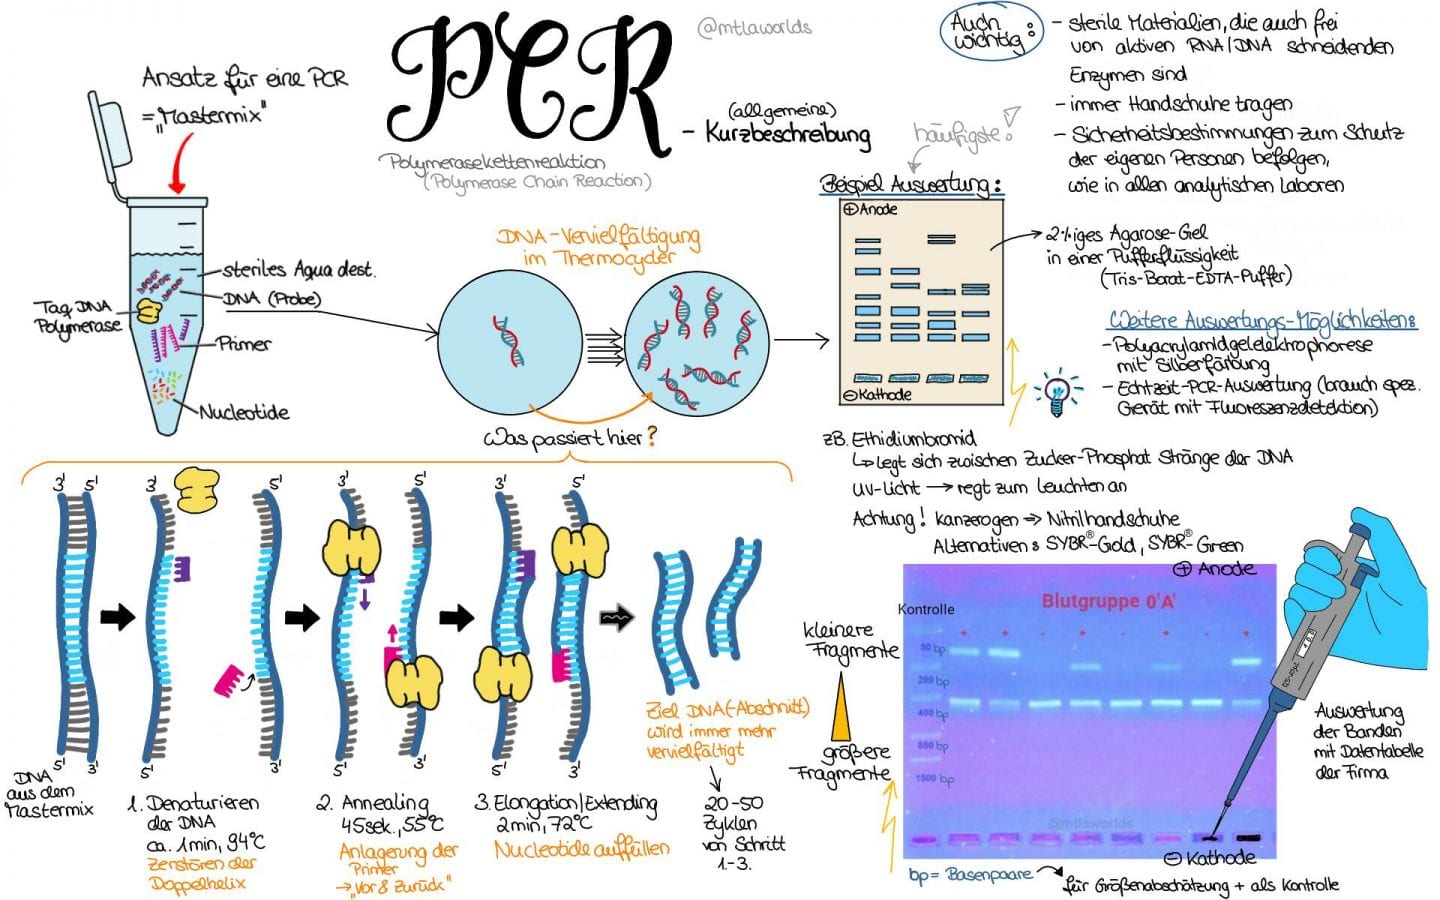 PCR
@mtlaworlds
(allgemeine)
- Kurzbeschreibung
Polymerasekettenreaktion
(Polymerase Chain Reaction)
Ansatz für eine PCR
= „Mastermix"
steriles Aqua dest.
DNA (Probe)
Taq DNA
Polymerase
Primer
Nucleotide
DNA-Vervielfältigung
im Thermocycler
Was passiert hier?
häufigste!
Beispiel Auswertung:
⊕ Anode
⊖ Kathode
Auch
wichtig:
- sterile Materialien, die auch frei
von aktiven RNA/DNA schneidenden
Enzymen sind
- immer Handschuhe tragen
- Sicherheitsbestimmungen zum Schutz
der eigenen Personen befolgen,
wie in allen analytischen Laboren
2%iges Agarose-Gel
in einer Pufferflüssigkeit
(Tris-Borat-EDTA-Puffer)
Weitere Auswertungs-Möglichkeiten:
- Polyacrylamidgelelektrophorese
mit Silberfärbung
- Echtzeit-PCR-Auswertung (brauch spez.
Gerät mit Fluoreszenzdetektion)
zB. Ethidiumbromid
↳ legt sich zwischen Zucker-Phosphat Stränge der DNA
UV-Licht → regt zum leuchten an
Achtung! kanzerogen ⇒ Nitrilhandschuhe
Alternativen: SYBR®-Gold, SYBR®-Green
3' 5'
3' 5'
3' 5'
3' 5'
5' 3'
5' 3'
5' 3'
5' 3'
DNA
aus dem
Mastermix
1. Denaturieren
der DNA
ca. 1min, 94°C
Zerstören der
Doppelhelix
2. Annealing
45sek., 55°C
Anlagerung der
Primer
→ „Vor & Zurück"
3. Elongation/Extending
2min, 72°C
Nucleotide auffüllen
Ziel DNA(-Abschnitt)
wird immer mehr
vervielfältigt
20-50
Zyklen
von Schritt
1.-3.
⊕ Anode
Kontrolle
Blutgruppe 0'A'
+ + - + - + - +
kleinere
Fragmente
größere
Fragmente
50 bp
200 bp
400 bp
850 bp
1500 bp
@mtlaworlds
⊖ Kathode
Auswertung
der Banden
mit Datentabelle
der Firma
bp = Basenpaare
für Größenabschätzung + als Kontrolle